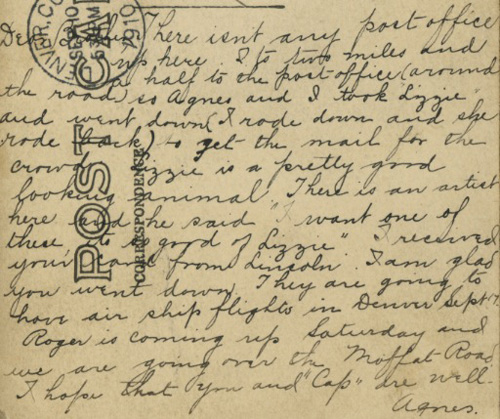 Dear There isn't any post office
up here. Its two miles and
a half to the post office (around
the road) so Agnes and I took Lizzie
and went down (I rode down and she
rode back) to get the mail for the
crowd. Lizzie is a pretty good
looking animal. There is an artist
here and he said "I want one of
these its good of Lizzie". I received
your card from Lincoln. I am glad
you went down. They are going to
have air ship flights in Denver Sept 17.
Roger is coming up Saturday and
we are going over the Moffat Road
I hope that you and "Cap" are well.
Agnes.
POST CA
CORRESPONDENCE
DENVER, CO
1910